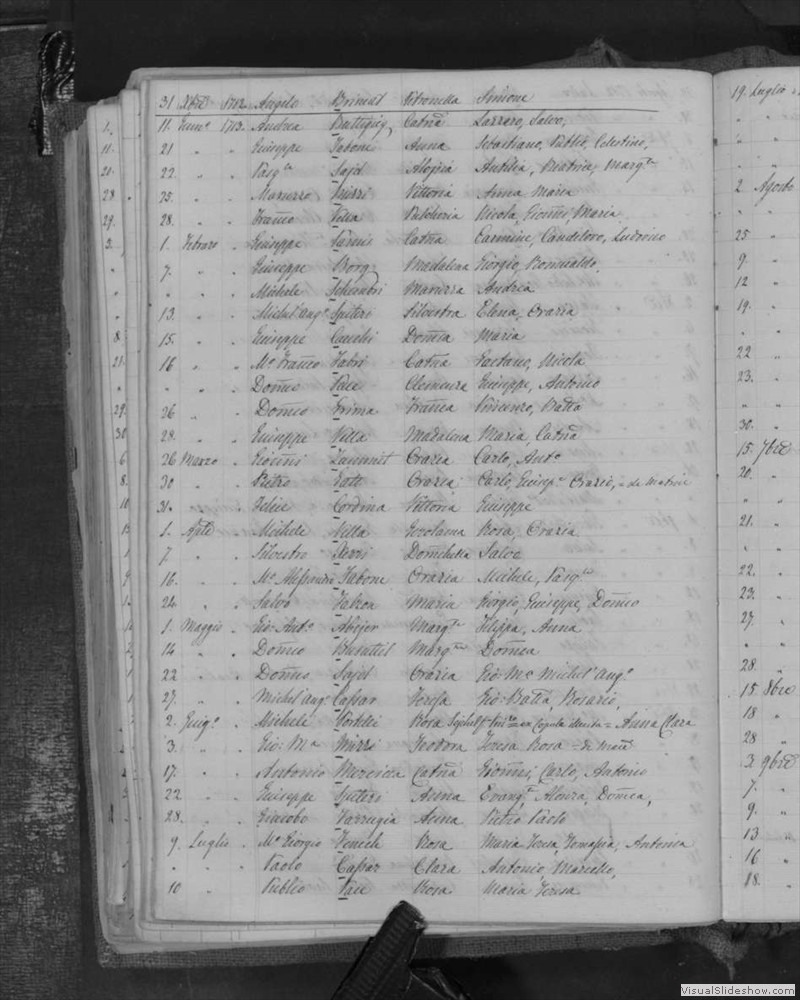 31 Xbre 1712 Angelo Brincat Petronella Simone
11. Genn° 1713. Andrea Buttigieg Catna Lazzaro, Salvo,
21 " " Giuseppe Tabone Anna Sebastiano, Publio, Celestino,
22. " " Pasq^le Sajd Aloysia Beatrice, Marg^ta
25. " " Mizzi Vittoria Anna Maria
28. " " Franco Vella Pulcheria Nicola, Gionni, Maria
1. Febraro " Giuseppe Catna Carmine, Candeloro, Ludovico
7. " " Giuseppe Borg Madalena Giorgio, Romualdo,
" " " Michele Schembri Maruzza Andrea
13. " " Michel'Ang° Spiteri Silvestra Elena, Grazia
15. " " Giuseppe Cauchi Domca Maria
16 " " M° Franco Fabri Catna Gaetano, Nicola
" " " Domco Pace Clemenza Giuseppe, Antonio
26 " " Domco Grima Franca Vincenzo, Batta
28. " " Giuseppe Vella Madalena Maria, Catna
26 Marzo " Gionni Zammit Grazia Carlo, Ant°
30 " " Pietro Grazia Carlo, Giusep^e Grazio,
31. " " Felice Cordina Vittoria Giuseppe
1. Aple " Michele Vella Gerolama Rosa, Grazia
7. " " Silvestro Domichella Salvo
16. " " M° Alessandro Tabone Grazia Michele, Pasq^le
24. " " Salvo Falzon Maria Giorgio, Giuseppe, Domco
1. Maggio " Gio: Ant° Abejer Marg^ta Filippa, Anna
14 " " Domco Buhattil Marg^ta Domca
22 " " Domco Sajd Grazia Gio: M^a Michel'Ang°
27. " " Michel'Ang° Cassar Teresa Gio: Batta, Rosario,
2. Giug° " Michele Rosa = Anna Clara
3. " " Gio: M^a Mizzi Teodora Teresa Rosa
17. " " Antonio Mercieca Catna Gionni, Carlo, Antonio
22 " " Giuseppe Spiteri Anna Evang^ta Alonza, Domca,
28. " " Giacobo Farrugia Anna Pietro Paolo
9. Luglio " M° Giorgio Fenech Rosa Maria Teresa, Tomasia, Antonia
" " " Paolo Cassar Clara Antonio, Marcello,
10 " " Publio Pace Rosa Maria Teresa
1.
11.
21.
28
29.
3.
8
21.
29.
30
6
8.
10
13
19. Luglio
2. Agosto
25
9
12
19.
22
23.
30.
15. 7bre
20.
21.
22.
23.
27.
28.
15. 8bre
18
28
3. 9bre
7.
9.
13
16
18.
VisualSlideshow.com